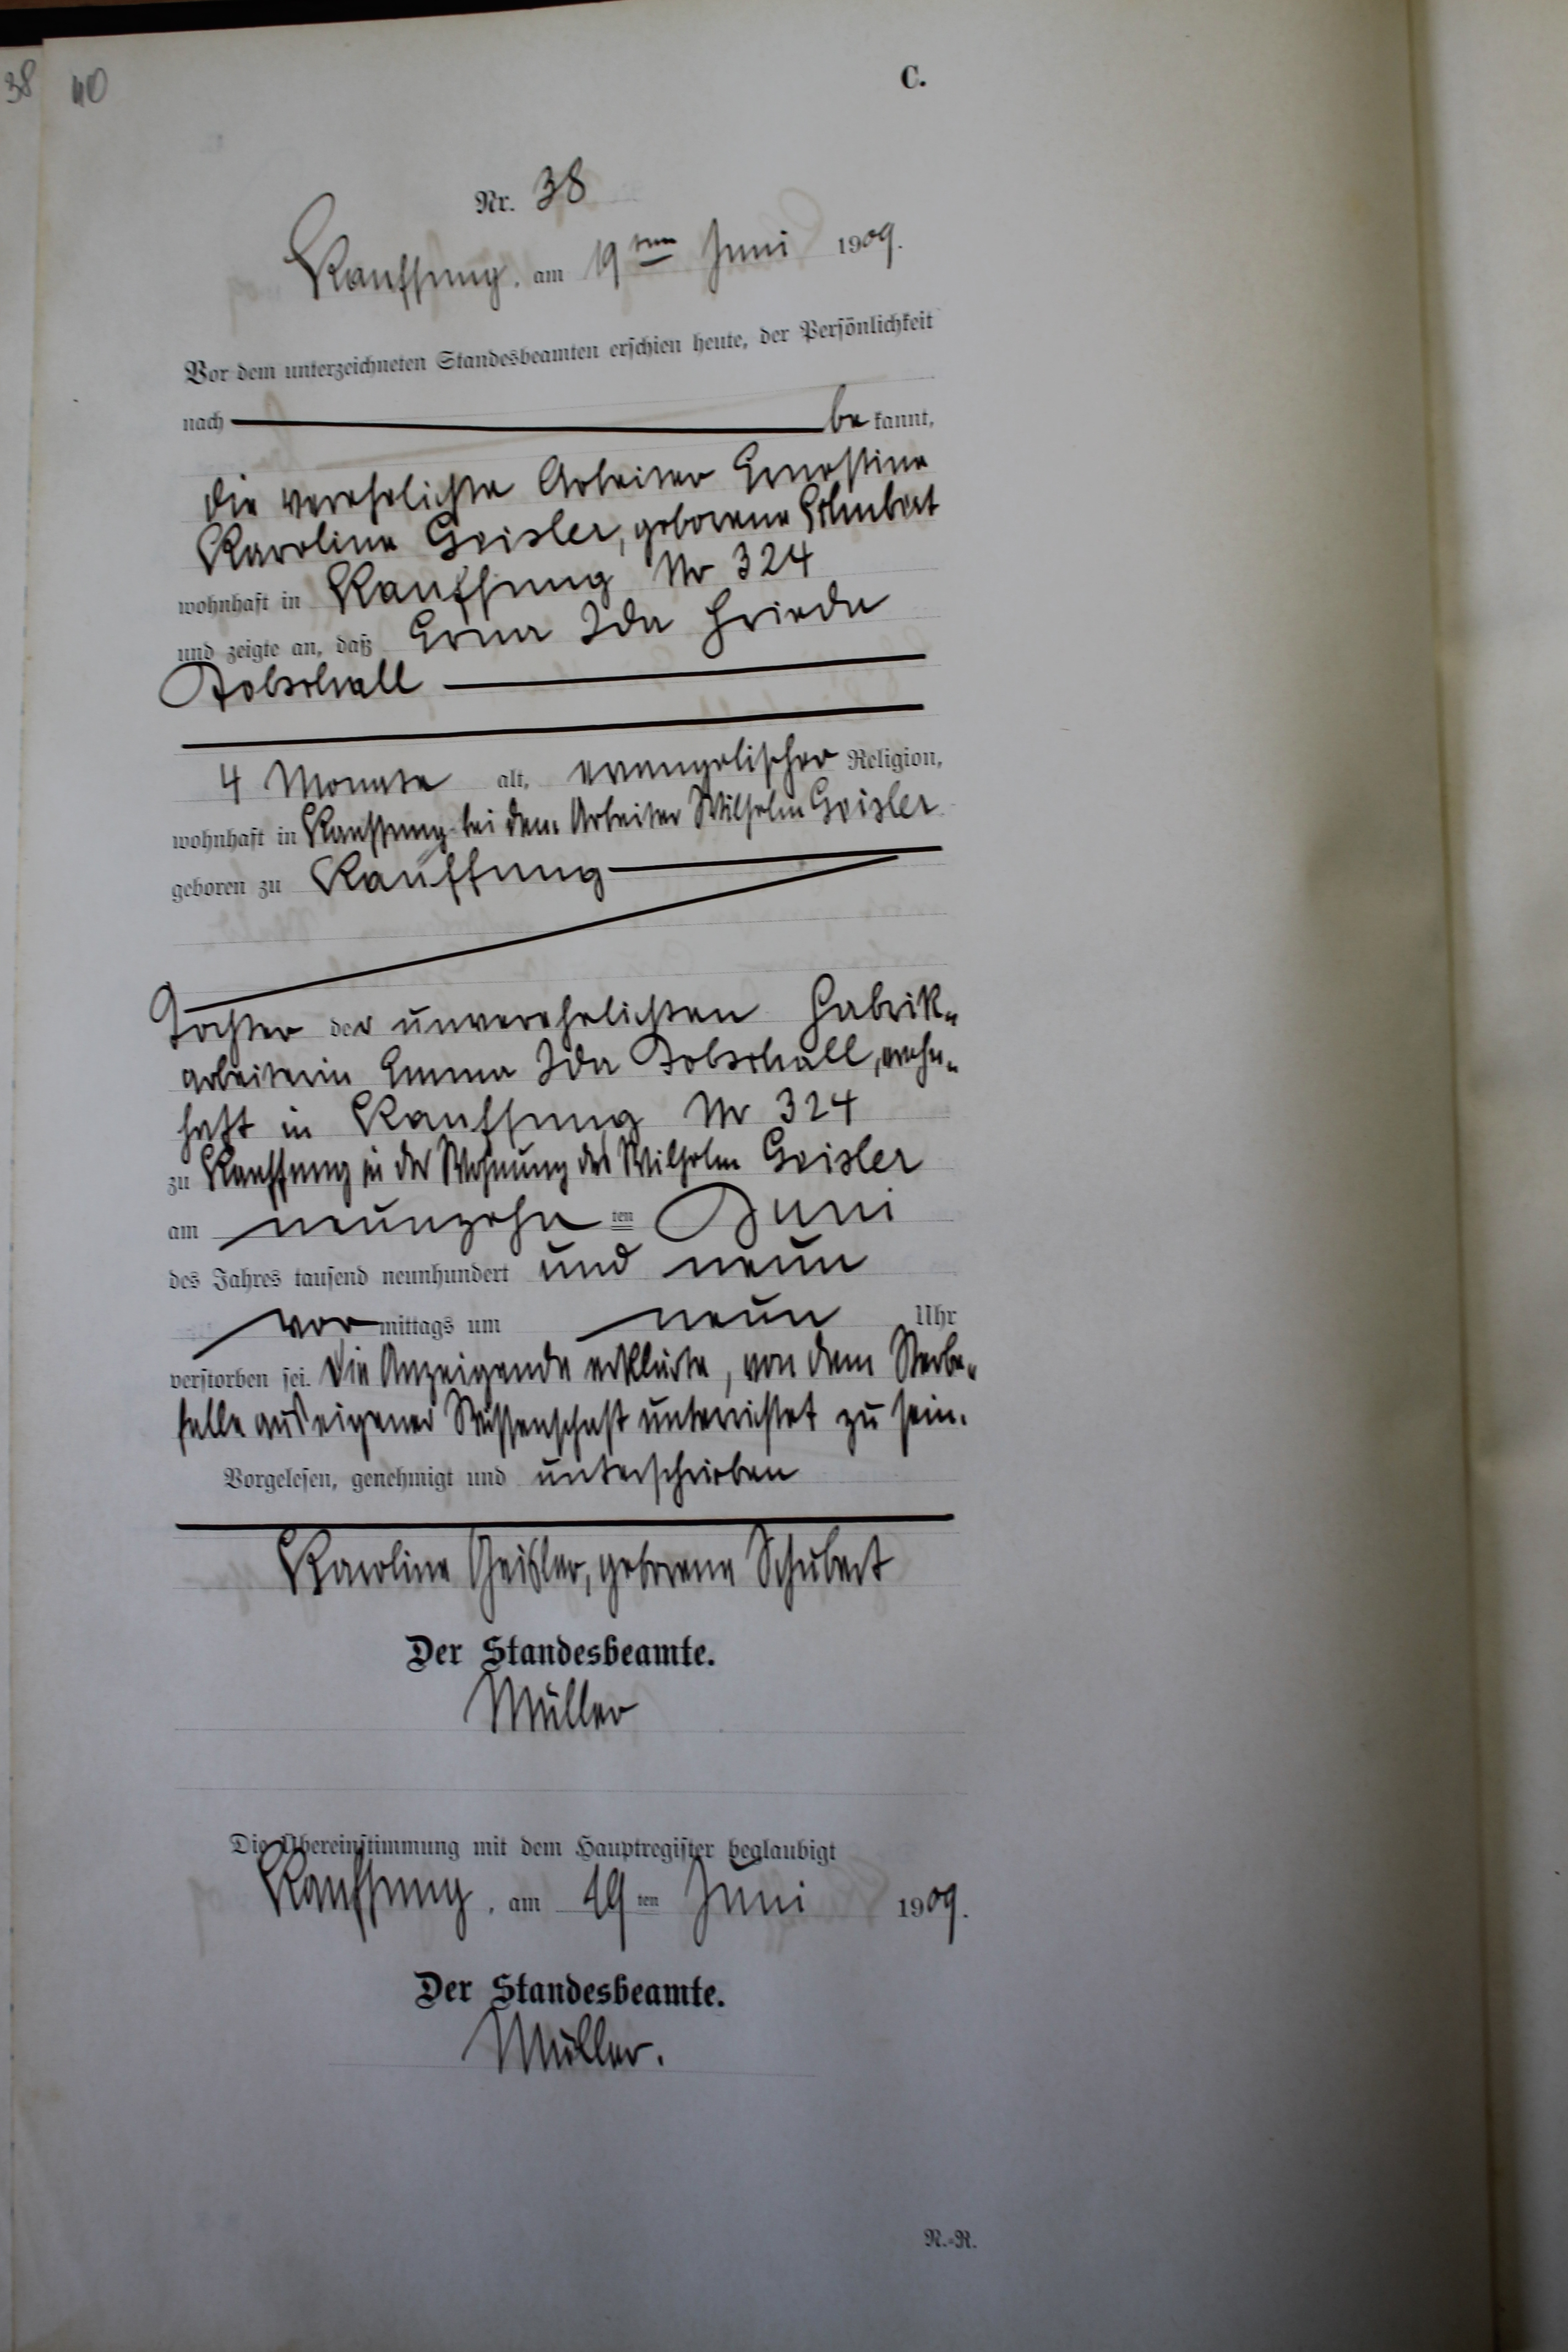 38 40
C.
Nr. 38
Kauffung, am 19ten Juni 1909.
Vor dem unterzeichneten Standesbeamten erschien heute, der Persönlichkeit
nach be kannt,
die verehelichte Arbeiter Ernestine
Karoline Geisler, geborene Schubert
wohnhaft in Kauffung Nr 324
und zeigte an, daß Erna Ida Frieda
Tobschall
4 Monate alt, evangelischer Religion,
wohnhaft in Kauffung bei dem Arbeiter Wilhelm Geisler
geboren zu Kauffung
Tochter der unverehelichten Fabrik-
arbeiterin Emma Ida Tobschall, wohn-
haft in Kauffung Nr 324
zu Kauffung in der Wohnung des Wilhelm Geisler
am neunzehn ten Juni
des Jahres tausend neunhundert und neun
vor mittags um neun Uhr
verstorben sei. Die Anzeigende erklärte, von dem Sterbe-
falle aus eigener Wissenschaft unterrichtet zu sein.
Vorgelesen, genehmigt und unterschrieben
Karoline Geisler, geborene Schubert
Der Standesbeamte.
Müller
Die Übereinstimmung mit dem Hauptregister beglaubigt
Kauffung, am 19ten Juni 1909.
Der Standesbeamte.
Müller.
N.-R.